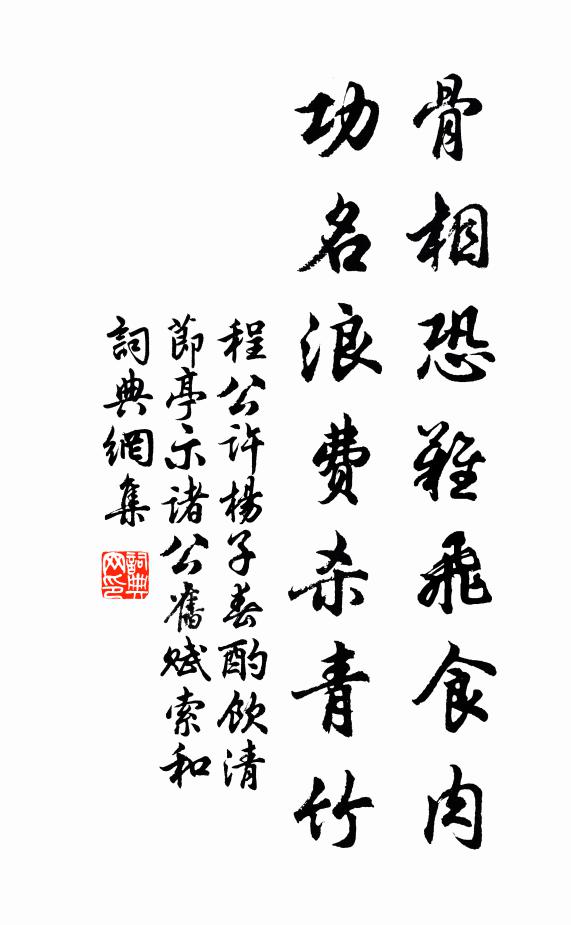 骨相恐難飛食肉
功名浪費杀青竹
程公許楊子春酌飲清
節亭示諸公舊賦索和
詞典網集
詞典网印